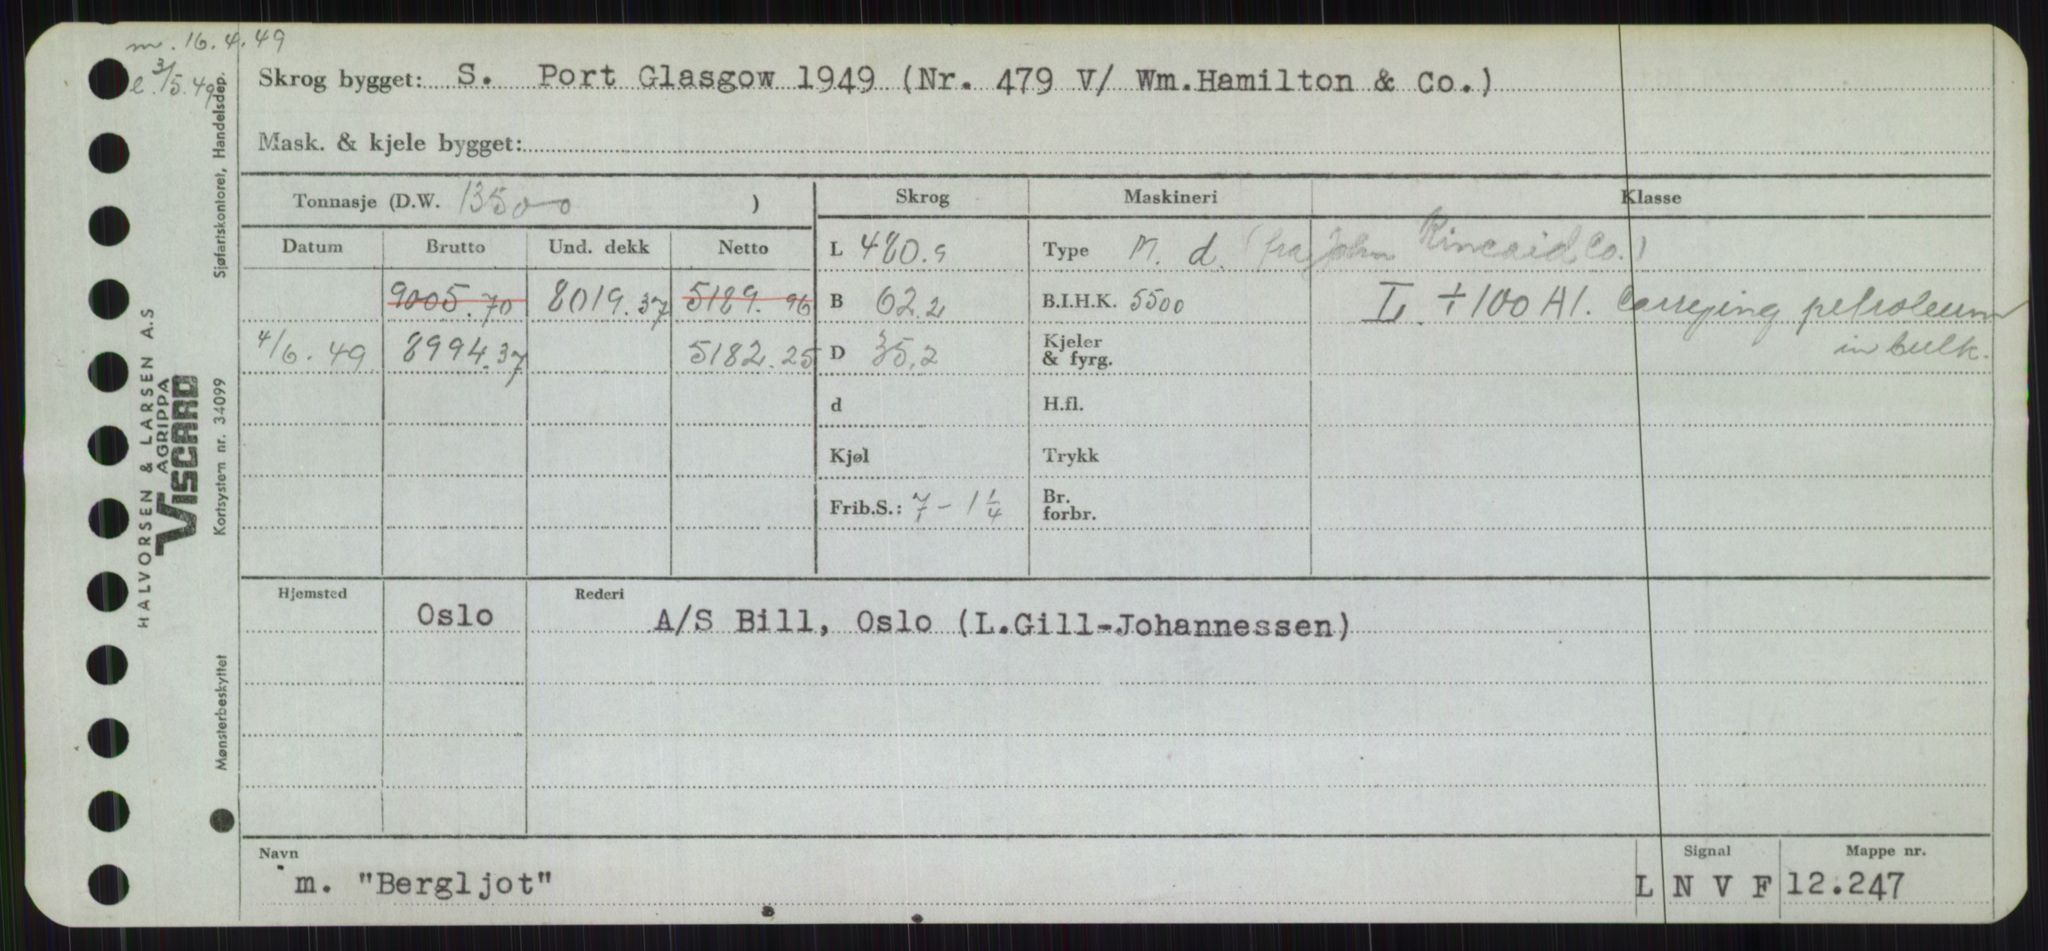 m. 16.4.49
l. 3/5.49
Skrog bygget: S. Port Glasgow 1949 (Nr. 479 V/ Wm.Hamilton & Co.)
Mask. & kjele bygget:
Tonnasje (D.W. 13500 )
Skrog Maskineri Klasse
Datum Brutto Und. dekk Netto
L 480.9 Type M. d. (fra John Kincaid Co.)
9005.70 8019.37 5189.96 B 62.2 B.I.H.K. 5500 L ÷100 A1. Carrying petroleum
in bulk.
4/6.49 8994.37 5182.25 D 35.2 Kjeler
& fyrg.
d H.fl.
Kjøl Trykk
Frib.S.: 7 - 1 1/4 Br.
forbr.
Hjemsted Rederi
Oslo A/S Bill, Oslo (L.Gill-Johannessen)
Navn Signal Mappe nr.
m. "Bergljot" L N V F 12.247
Sjøfartskontoret, Handelsdep.
Kortsystem nr. 34099
Mønsterbeskyttet
HALVORSEN & LARSEN A.S
AGRIPPA
VISCARD